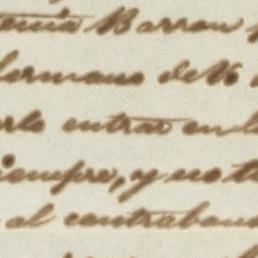 tenia Barron
hermano de V.
rlo entrar en l
iempre, y no t
al contraband